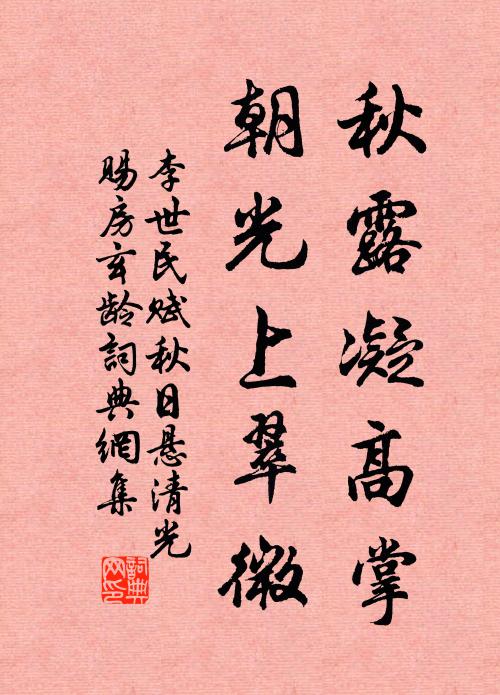 秋露凝高掌
朝光上翠微
李世民赋秋日悬清光
赐房玄龄詞典網集
詞典
网印